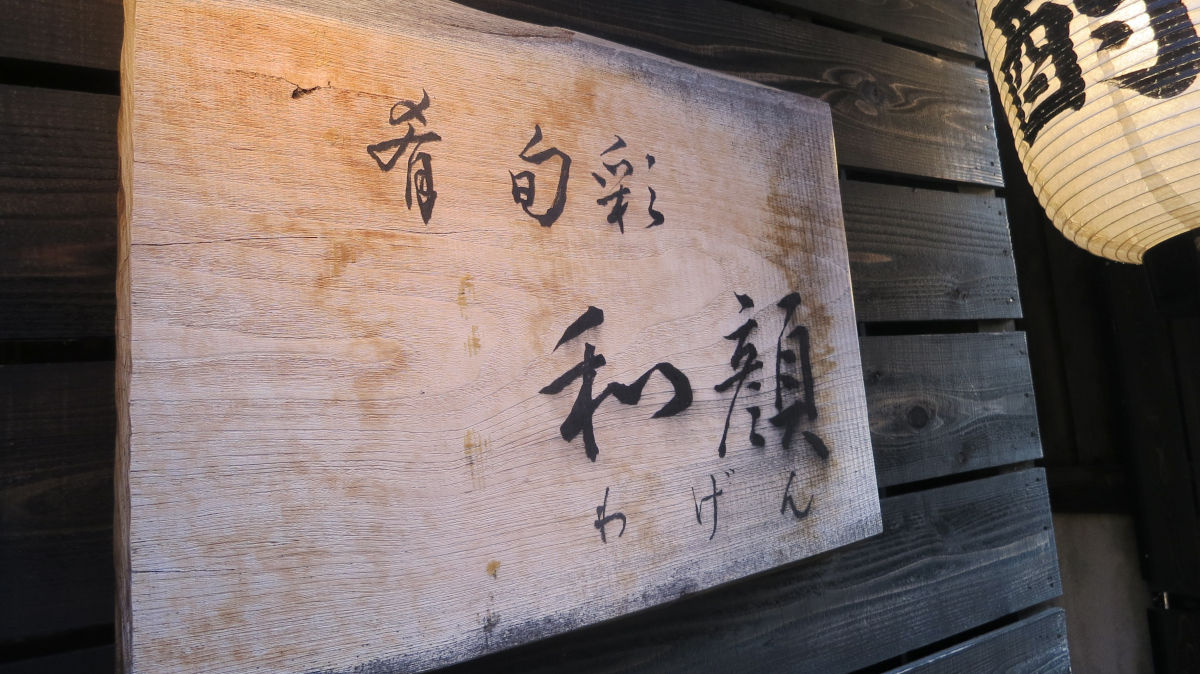 肴 旬彩
和顔
わげん
酒